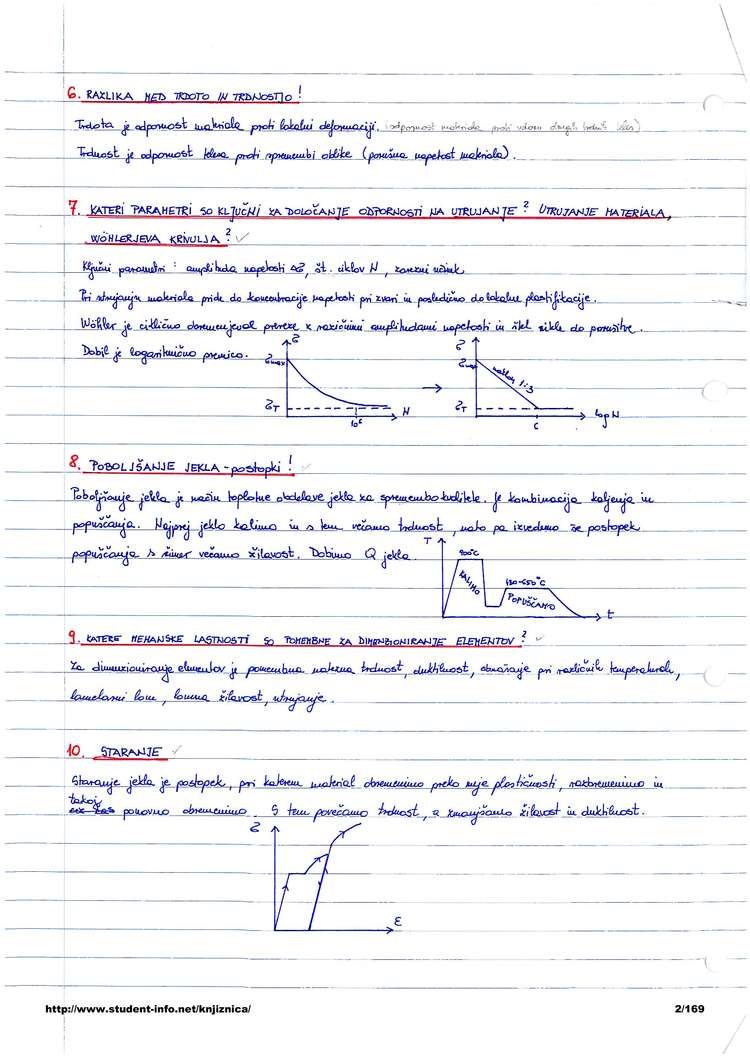 6. RAZLIKA MED TRDOTO IN TRDNOSTJO!
Trdota je odpornost materiala proti lokalni deformaciji. (odpornost materiala proti vdoru drugih trdnih teles)
Trdnost je odpornost telesa proti spremembi oblike (porušna napetost materiala).
7. KATERI PARAMETRI SO KLJUČNI ZA DOLOČANJE ODPORNOSTI NA UTRUJANJE? UTRUJANJE MATERIALA,
WÖHLERJEVA KRIVULJA? ✓
Ključni parametri: amplituda napetosti Δσ, št. ciklov N, zarezni učinek
Pri utrujanju materiala pride do koncentracije napetosti pri zvari in posledično do lokalne plastifikacije.
Wöhler je ciklično obremenjeval prereze z različnimi amplitudami napetosti in štel cikle do porušitve.
Dobil je logaritmično premico.
σ
σmax
σT
10⁶
N
→
σ
σmax
naklon 1:3
σT
6
log N
8. POBOLJŠANJE JEKLA - postopki! ✓
Poboljšanje jekla je način toplotne obdelave jekla za spremembo kvalitete. Je kombinacija kaljenja in
popuščanja. Najprej jeklo kalimo in s tem večamo trdnost, nato pa izvedemo še postopek
popuščanja s čimer večamo žilavost. Dobimo Q jekla.
T
900°C
KALIMO
450-650°C
POPUŠČAMO
t
9. KATERE MEHANSKE LASTNOSTI SO POMEMBNE ZA DIMENZIONIRANJE ELEMENTOV? ✓
Za dimenzioniranje elementov je pomembna natezna trdnost, duktilnost, obnašanje pri različnih temperaturah,
lamelarni lom, lomna žilavost, utrujanje.
10. STARANJE ✓
Staranje jekla je postopek, pri katerem material obremenimo preko meje plastičnosti, razbremenimo in
takoj
ponovno obremenimo. S tem povečamo trdnost, a zmanjšamo žilavost in duktilnost.
σ
ε
http://www.student-info.net/knjiznica/
2/169